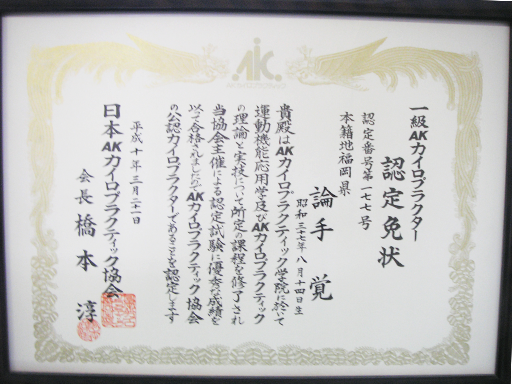 AK
一級AKカイロプラクター
認定免状
認定番号第一七七号
本籍地福岡県
論手 覚
昭和三十七年八月十四日生
貴殿はAKカイロプラクティック学院に於て
運動機能応用学及びAKカイロプラクティック
の理論と実技について所定の課程を修了され
当協会主催による認定試験に優秀な成績を
以て合格されましたのでAKカイロプラクティック協会
の公認カイロプラクターであることを認定します
平成十年三月二十一日
日本AKカイロプラクティック協会
会長 橋本 淳